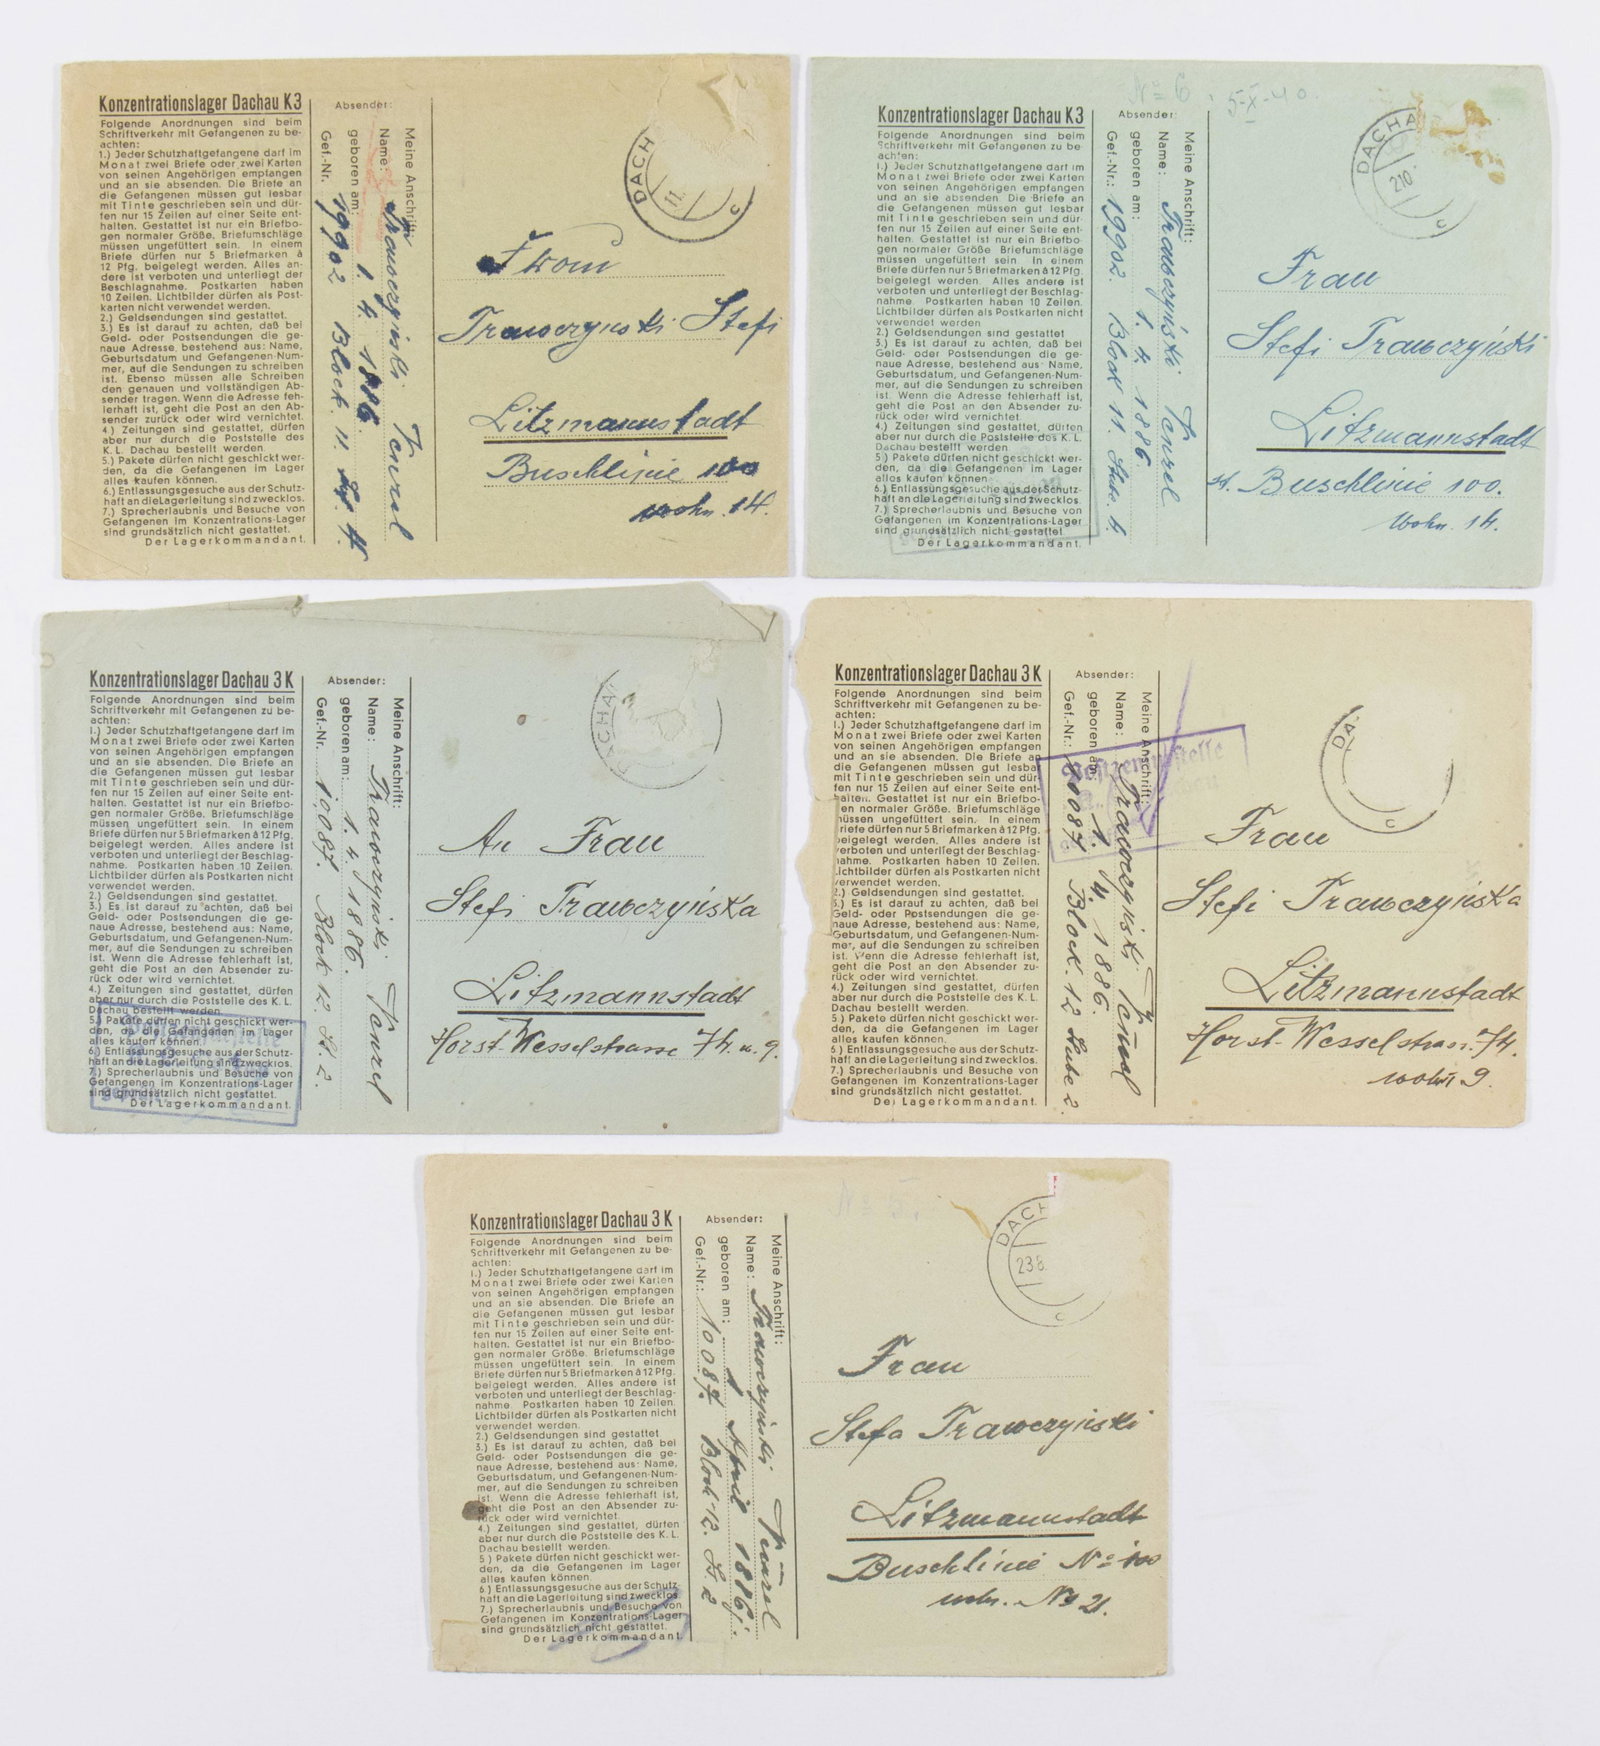 Konzentrationslager Dachau K3
Folgende Anordnungen sind beim
Schriftverkehr mit Gefangenen zu be-
achten:
1.) Jeder Schutzhaftgefangene darf im
Monat zwei Briefe oder zwei Karten
von seinen Angehörigen empfangen
und an sie absenden. Die Briefe an
die Gefangenen müssen gut lesbar
mit Tinte geschrieben sein und dür-
fen nur 15 Zeilen auf einer Seite ent-
halten. Gestattet ist nur ein Briefbo-
gen normaler Größe. Briefumschläge
müssen ungefüttert sein. In einem
Briefe dürfen nur 5 Briefmarken à
12 Pfg. beigelegt werden. Alles an-
dere ist verboten und unterliegt der
Beschlagnahme. Postkarten haben
10 Zeilen. Lichtbilder dürfen als Post-
karten nicht verwendet werden.
2.) Geldsendungen sind gestattet.
3.) Es ist darauf zu achten, daß bei
Geld- oder Postsendungen die ge-
naue Adresse, bestehend aus: Name,
Geburtsdatum und Gefangenen-Num-
mer, auf die Sendungen zu schreiben
ist. Ebenso müssen alle Schreiben
den genauen und vollständigen Ab-
sender tragen. Wenn die Adresse feh-
lerhaft ist, geht die Post an den Ab-
sender zurück oder wird vernichtet.
4.) Zeitungen sind gestattet, dürfen
aber nur durch die Poststelle des
K. L. Dachau bestellt werden
5.) Pakete dürfen nicht geschickt wer-
den, da die Gefangenen im Lager
alles kaufen können.
6.) Entlassungsgesuche aus der Schutz-
haft an die Lagerleitung sind zwecklos.
7.) Sprecherlaubnis und Besuche von
Gefangenen im Konzentrations-Lager
sind grundsätzlich nicht gestattet.
Der Lagerkommandant.
Absender:
Meine Anschrift:
Name: Trawczyński Tenzel
geboren am: 1. 4. 1886
Gef.-Nr. 19902 Block. 11.
DACH
11.
c
Trawczynski Stefi
Litzmannstadt
Buschlinie 100
wohn. 14.
Konzentrationslager Dachau K3
Folgende Anordnungen sind beim
Schriftverkehr mit Gefangenen zu be-
achten:
1.) Jeder Schutzhaftgefangene darf im
Monat zwei Briefe oder zwei Karten
von seinen Angehörigen empfangen
und an sie absenden. Die Briefe an
die Gefangenen müssen gut lesbar
mit Tinte geschrieben sein und dür-
fen nur 15 Zeilen auf einer Seite ent-
halten. Gestattet ist nur ein Briefbo-
gen normaler Größe. Briefumschläge
müssen ungefüttert sein. In einem
Briefe dürfen nur 5 Briefmarken à 12 Pfg.
beigelegt werden. Alles andere ist
verboten und unterliegt der Beschlag-
nahme. Postkarten haben 10 Zeilen.
Lichtbilder dürfen als Postkarten nicht
verwendet werden
2.) Geldsendungen sind gestattet
3.) Es ist darauf zu achten, daß bei
Geld- oder Postsendungen die ge-
naue Adresse, bestehend aus: Name,
Geburtsdatum und Gefangenen-Num-
mer, auf die Sendungen zu schreiben
ist. Ebenso müssen alle Schreiben
den genauen und vollständigen Ab-
sender tragen. Wenn die Adresse
fehlerhaft ist, geht die Post an den
Absender zu-
rück oder wird vernichtet.
4.) Zeitungen sind gestattet, dürfen
aber nur durch die Poststelle des K. L.
Dachau bestellt werden
5.) Pakete dürfen nicht geschickt wer-
den, da die Gefangenen im Lager
alles kaufen können
6.) Entlassungsgesuche aus der Schutz-
haft an die Lagerleitung sind zwecklos.
7.) Sprecherlaubnis und Besuche von
Gefangenen im Konzentrations-Lager
sind grundsätzlich nicht gestattet
Der Lagerkommandant.
Absender:
Meine Anschrift:
Name: Trawczyński Tenzel
geboren am: 1. 4. 1886.
Gef.-Nr.: 19902. Block 11 Stube. 4
No 6. 5-X-40.
DACHA
2.10
c
Frau
Stefi Trawczyński
Litzmannstadt
st. Buschlinie 100.
wohn. 14.
Konzentrationslager Dachau 3 K
Folgende Anordnungen sind beim
Schriftverkehr mit Gefangenen zu be-
achten:
1.) Jeder Schutzhaftgefangene darf im
Monat zwei Briefe oder zwei Karten
von seinen Angehörigen empfangen
und an sie absenden. Die Briefe an
die Gefangenen müssen gut lesbar
mit Tinte geschrieben sein und dür-
fen nur 15 Zeilen auf einer Seite ent-
halten. Gestattet ist nur ein Briefbo-
gen normaler Größe. Briefumschläge
müssen ungefüttert sein. In einem
Briefe dürfen nur 5 Briefmarken à 12 Pfg.
beigelegt werden. Alles andere ist
verboten und unterliegt der Beschlag-
nahme. Postkarten haben 10 Zeilen.
Lichtbilder dürfen als Postkarten nicht
verwendet werden.
2.) Geldsendungen sind gestattet.
3.) Es ist darauf zu achten, daß bei
Geld- oder Postsendungen die ge-
naue Adresse, bestehend aus: Name,
Geburtsdatum und Gefangenen-Num-
mer, auf die Sendungen zu schreiben
ist. Wenn die Adresse fehlerhaft ist,
geht die Post an den Absender zu-
rück oder wird vernichtet.
4.) Zeitungen sind gestattet, dürfen
aber nur durch die Poststelle des K. L.
Dachau bestellt werden.
5.) Pakete dürfen nicht geschickt wer-
den, da die Gefangenen im Lager
alles kaufen können.
6.) Entlassungsgesuche aus der Schutz-
haft an die Lagerleitung sind zwecklos.
7.) Sprecherlaubnis und Besuche von
Gefangenen im Konzentrations-Lager
sind grundsätzlich nicht gestattet.
Der Lagerkommandant.
Absender:
Meine Anschrift:
Name: Trawczyński Tenzel
geboren am: 1. 4. 1886.
Gef.-Nr. 10087. Block 12. St. 2.
DACHA
An Frau
Stefi Trawczyńska
Litzmannstadt
Horst-Wesselstrasse 74 w. 9.
Konzentrationslager Dachau 3 K
Folgende Anordnungen sind beim
Schriftverkehr mit Gefangenen zu be-
achten:
1.) Jeder Schutzhaftgefangene darf im
Monat zwei Briefe oder zwei Karten
von seinen Angehörigen empfangen
und an sie absenden. Die Briefe an
die Gefangenen müssen gut lesbar
mit Tinte geschrieben sein und dür
fen nur 15 Zeilen auf einer Seite ent-
halten. Gestattet ist nur ein Briefbo-
en normaler Größe. Briefumschläge
müssen ungefüttert sein. In einem
riefe dürfen nur 5 Briefmarken à 12 Pfg.
eigelegt werden. Alles andere ist
erboten und unterliegt der Beschlag-
ahme. Postkarten haben 10 Zeilen.
ichtbilder dürfen als Postkarten nicht
verwendet werden.
2.) Geldsendungen sind gestattet.
3.) Es ist darauf zu achten, daß bei
Geld- oder Postsendungen die ge-
naue Adresse, bestehend aus: Name,
Geburtsdatum und Gefangenen-Num-
mer, auf die Sendungen zu schreiben
ist. Wenn die Adresse fehlerhaft ist,
geht die Post an den Absender zu-
rück oder wird vernichtet.
4.) Zeitungen sind gestattet, dürfen
aber nur durch die Poststelle des K. L.
Dachau bestellt werden.
5.) Pakete dürfen nicht geschickt wer-
den, da die Gefangenen im Lager
alles kaufen können.
6.) Entlassungsgesuche aus der Schutz-
haft an die Lagerleitung sind zwecklos.
7.) Sprecherlaubnis und Besuche von
Gefangenen im Konzentrations-Lager
sind grundsätzlich nicht gestattet.
Der Lagerkommandant.
Absender:
Meine Anschrift:
Name: Trawczyński Tenzel
geboren am: 1. 4. 1886.
Gef.-Nr.: 10087. Block. 12 Stube 2.
Postzensurstelle
DA
c
Frau
Stefi Trawczyńska
Litzmannstadt
Horst-Wesselstrass. 74.
wohn 9.
Konzentrationslager Dachau 3 K
Folgende Anordnungen sind beim
Schriftverkehr mit Gefangenen zu be-
achten:
1.) Jeder Schutzhaftgefangene darf im
Monat zwei Briefe oder zwei Karten
von seinen Angehörigen empfangen
und an sie absenden. Die Briefe an
die Gefangenen müssen gut lesbar
mit Tinte geschrieben sein und dür-
fen nur 15 Zeilen auf einer Seite ent-
halten. Gestattet ist nur ein Briefbo-
gen normaler Größe. Briefumschläge
müssen ungefüttert sein. In einem
Briefe dürfen nur 5 Briefmarken à 12 Pfg.
beigelegt werden. Alles andere ist
verboten und unterliegt der Beschlag-
nahme. Postkarten haben 10 Zeilen.
Lichtbilder dürfen als Postkarten nicht
verwendet werden.
2.) Geldsendungen sind gestattet
3.) Es ist darauf zu achten, daß bei
Geld- oder Postsendungen die ge-
naue Adresse, bestehend aus: Name,
Geburtsdatum und Gefangenen-Num-
mer, auf die Sendungen zu schreiben
ist. Wenn die Adresse fehlerhaft ist,
geht die Post an den Absender zu-
rück oder wird vernichtet.
4.) Zeitungen sind gestattet, dürfen
aber nur durch die Poststelle des K. L.
Dachau bestellt werden.
5.) Pakete dürfen nicht geschickt wer-
den, da die Gefangenen im Lager
alles kaufen können.
6.) Entlassungsgesuche aus der Schutz
haft an die Lagerleitung sind zwecklos
7.) Sprecherlaubnis und Besuche von
Gefangenen im Konzentrations-Lager
sind grundsätzlich nicht gestattet.
Der Lagerkommandant.
Absender:
Meine Anschrift:
Name: Trawczyński Tenzel
geboren am: 1 April 1886.
Gef.-Nr.: 10087. Block-12. St. 2
No 5.
DACH
23.8.
c
Frau
Stefa Trawczyński
Litzmannstadt
Buschlinie No 100
No 21.